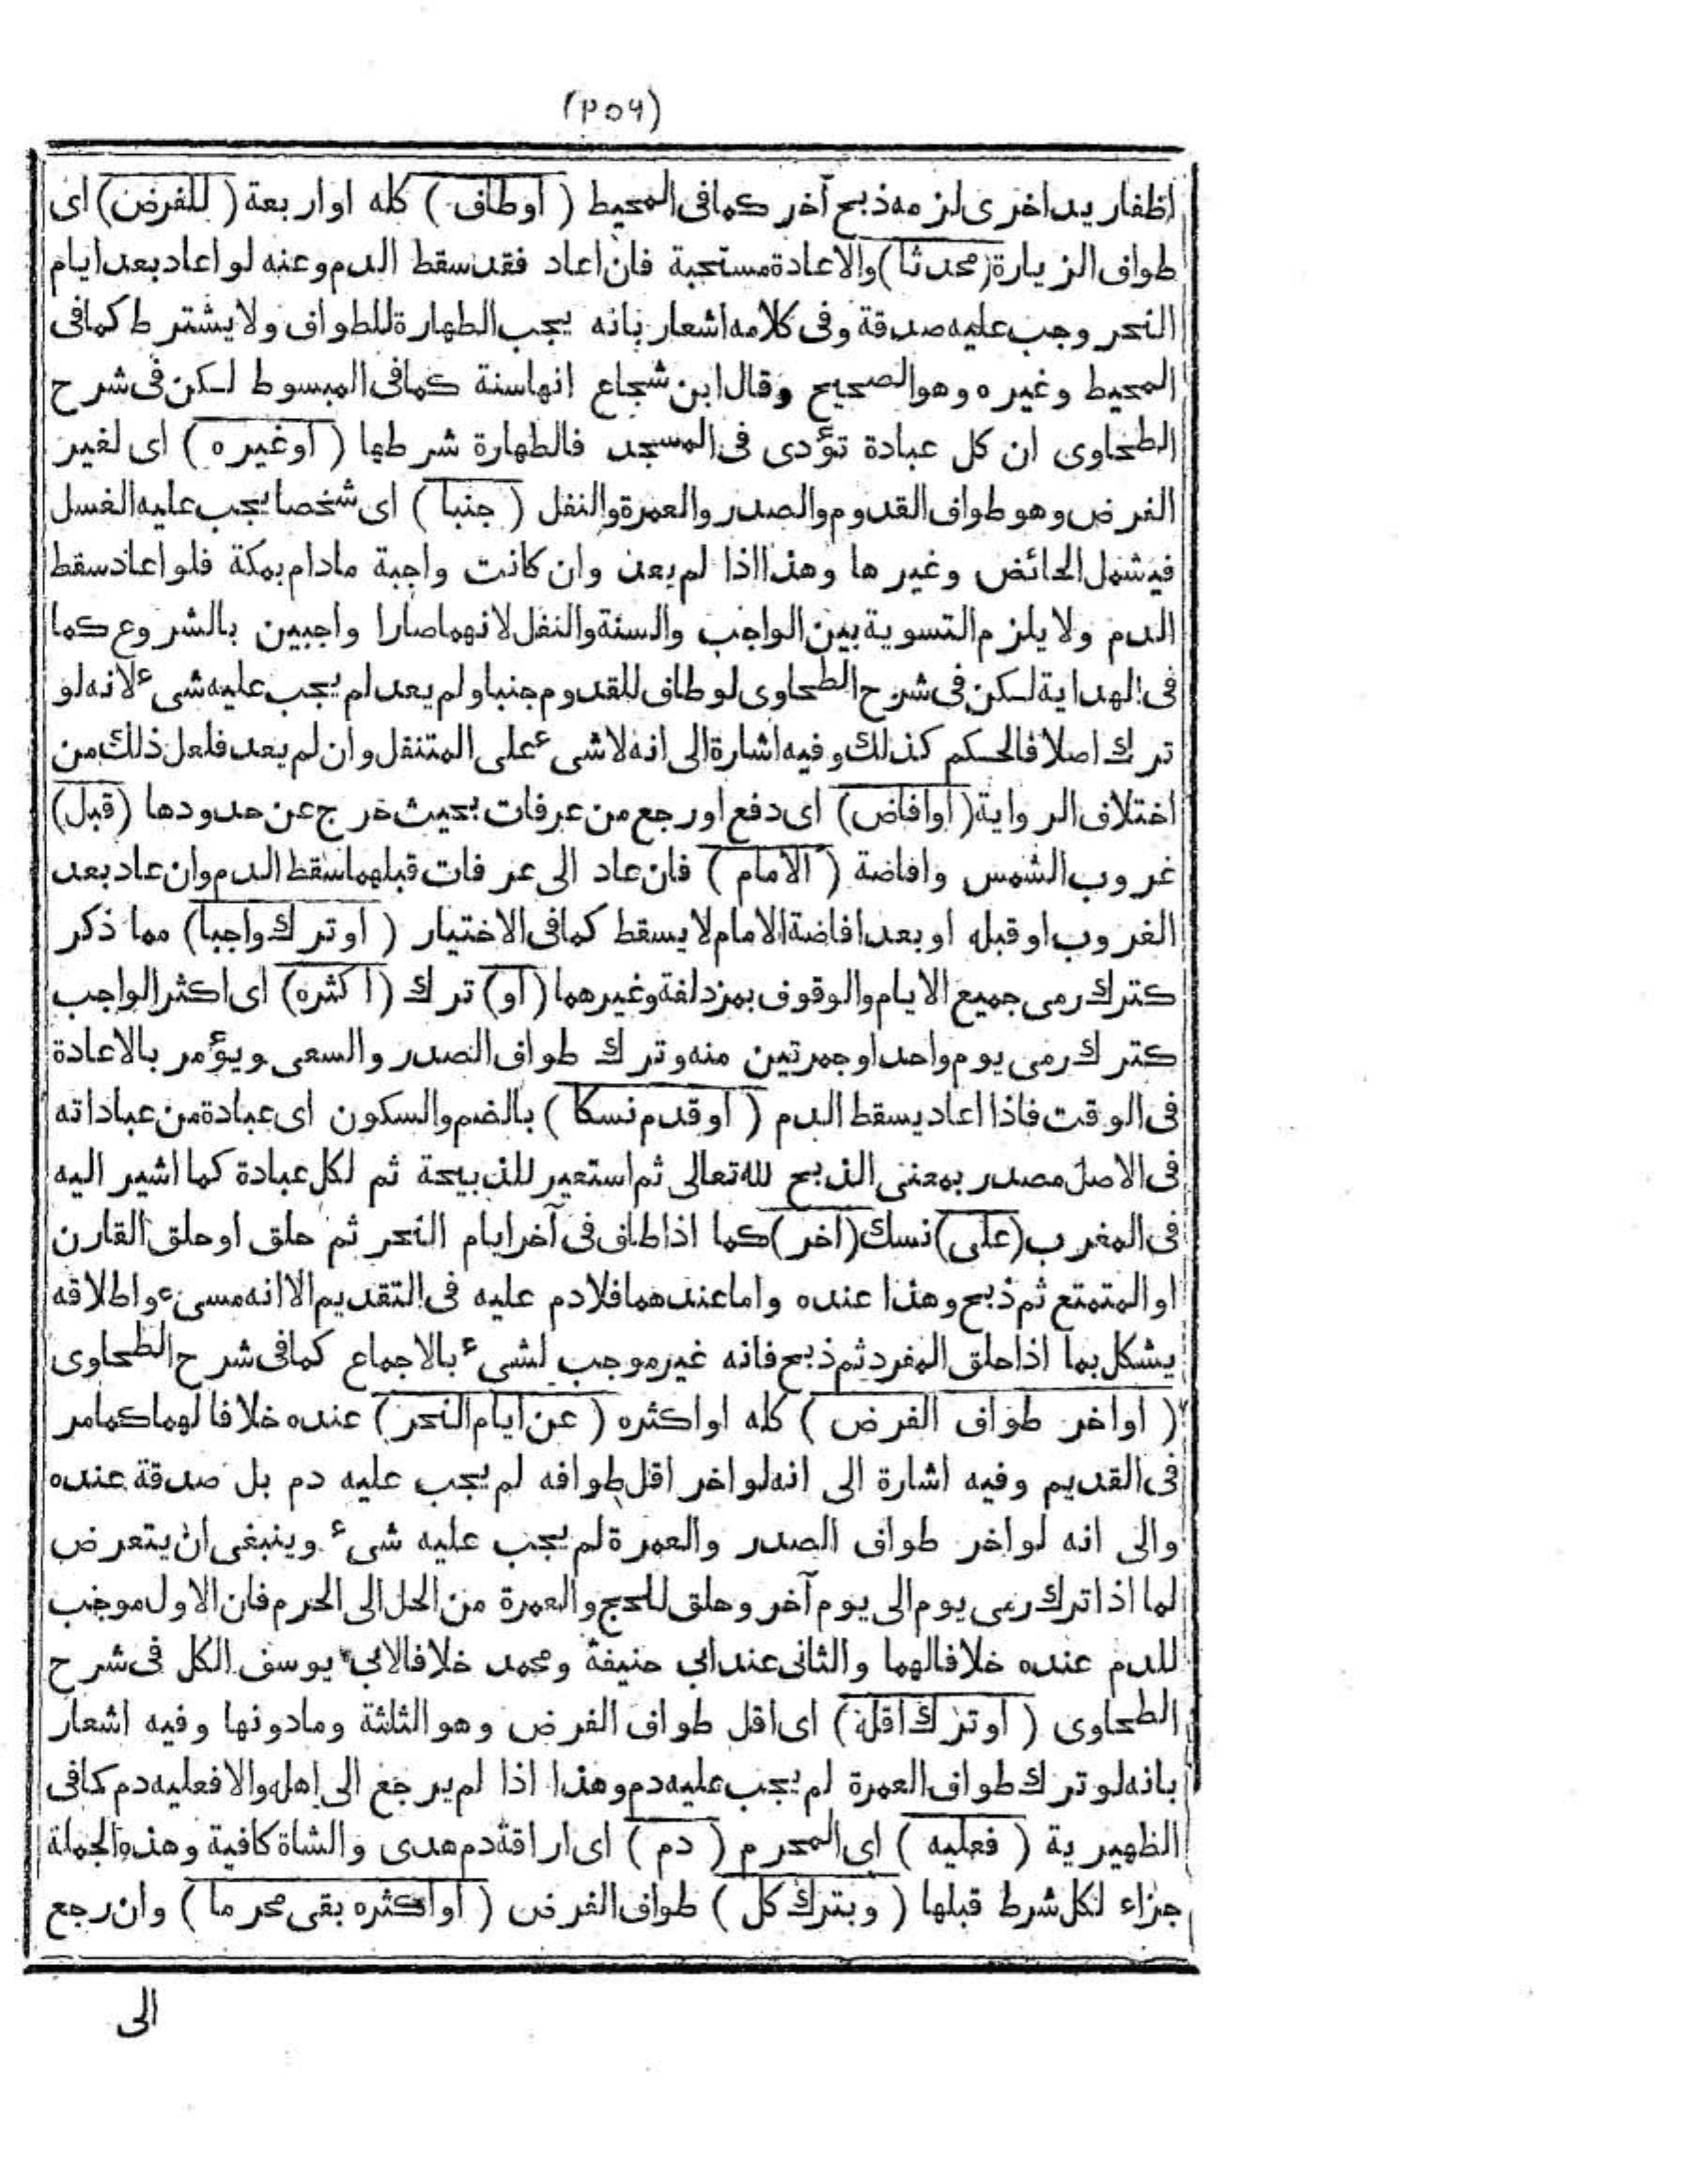 (٢٥٦)
اظفار يد اخرى لزمه ذبح آخر كما فى المحيط ( اوطاف ) كله او اربعة ( للفرض ) اى
طواف الزيارة ( محدثا ) والاعادة مستحبة فان اعاد فقد سقط الدم وعنه لو اعاد بعد ايام
النحر وجب عليه صدقة وفى كلامه اشعار بانه يجب الطهارة للطواف ولا يشترط كما فى
المحيط وغيره وهو الصحيح وقال ابن شجاع انها سنة كما فى المبسوط لكن فى شرح
الطحاوى ان كل عبادة تؤدى فى المسجد فالطهارة شرطها ( اوغيره ) اى لغير
الفرض وهو طواف القدوم والصدر والعمرة والنفل ( جنبا ) اى شخصا يجب عليه الغسل
فيشمل الحائض وغيرها وهذا اذا لم يعد وان كانت واجبة مادام بمكة فلو اعاد سقط
الدم ولا يلزم التسوية بين الواجب والسنة والنفل لانهما صارا واجبين بالشروع كما
فى الهداية لكن فى شرح الطحاوى لو طاف للقدوم جنبا ولم يعد لم يجب عليه شىء لانه لو
ترك اصلا فالحكم كذلك وفيه اشارة الى انه لا شىء على المتنفل وان لم يعد فلعل ذلك من
اختلاف الرواية ( اوافاض ) اى دفع اورجع من عرفات بحيث خرج عن حدودها ( قبل )
غروب الشمس وافاضة ( الامام ) فان عاد الى عرفات قبلهما سقط الدم وان عاد بعد
الغروب او قبله او بعد افاضة الامام لا يسقط كما فى الاختيار ( اوترك واجبا ) مما ذكر
كترك رمى جميع الايام والوقوف بمزدلفة وغيرهما ( او ) ترك ( اكثره ) اى اكثر الواجب
كترك رمى يوم واحد او جمرتين منه وترك طواف الصدر والسعى ويؤمر بالاعادة
فى الوقت فاذا اعاد يسقط الدم ( اوقدم نسكا ) بالضم والسكون اى عبادة من عباداته
فى الاصل مصدر بمعنى الذبح لله تعالى ثم استعير للذبيحة ثم لكل عبادة كما اشير اليه
فى المغرب ( على ) نسك ( آخر ) كما اذا طاف فى آخر ايام النحر ثم حلق او حلق القارن
او المتمتع ثم ذبح وهذا عنده واما عندهما فلا دم عليه فى التقديم الا انه مسىء واطلاقه
يشكل بما اذا حلق المفرد ثم ذبح فانه غير موجب لشىء بالاجماع كما فى شرح الطحاوى
( اواخر طواف الفرض ) كله او اكثره ( عن ايام النحر ) عنده خلافا لهما كما مر
فى القديم وفيه اشارة الى انه لو اخر اقل طوافه لم يجب عليه دم بل صدقة عنده
والى انه لو اخر طواف الصدر والعمرة لم يجب عليه شىء وينبغى ان يتعرض
لما اذا ترك رمى يوم الى يوم آخر وحلق للحج والعمرة من الحل الى الحرم فان الاول موجب
للدم عنده خلافا لهما والثانى عند ابى حنيفة ومحمد خلافا لابى يوسف الكل فى شرح
الطحاوى ( اوترك اقله ) اى اقل طواف الفرض وهو الثلثة ومادونها وفيه اشعار
بانه لو ترك طواف العمرة لم يجب عليه دم وهذا اذا لم يرجع الى اهله والا فعليه دم كما فى
الظهيرية ( فعليه ) اى المحرم ( دم ) اى اراقة دم هدى والشاة كافية وهذه الجملة
جزاء لكل شرط قبلها ( وبترك كل ) طواف الفرض ( اواكثره بقى محرما ) وان رجع
الى